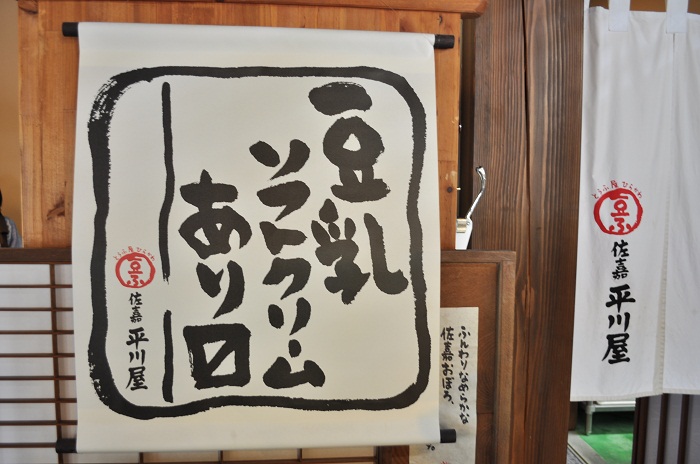 豆乳
ソフトクリーム
あり〼
とうふ屋ひらかわ
豆ふ
佐嘉 平川屋
ふんわりなめらかな
佐嘉おぼろ、
とうふ屋ひらかわ
豆ふ
佐嘉 平川屋